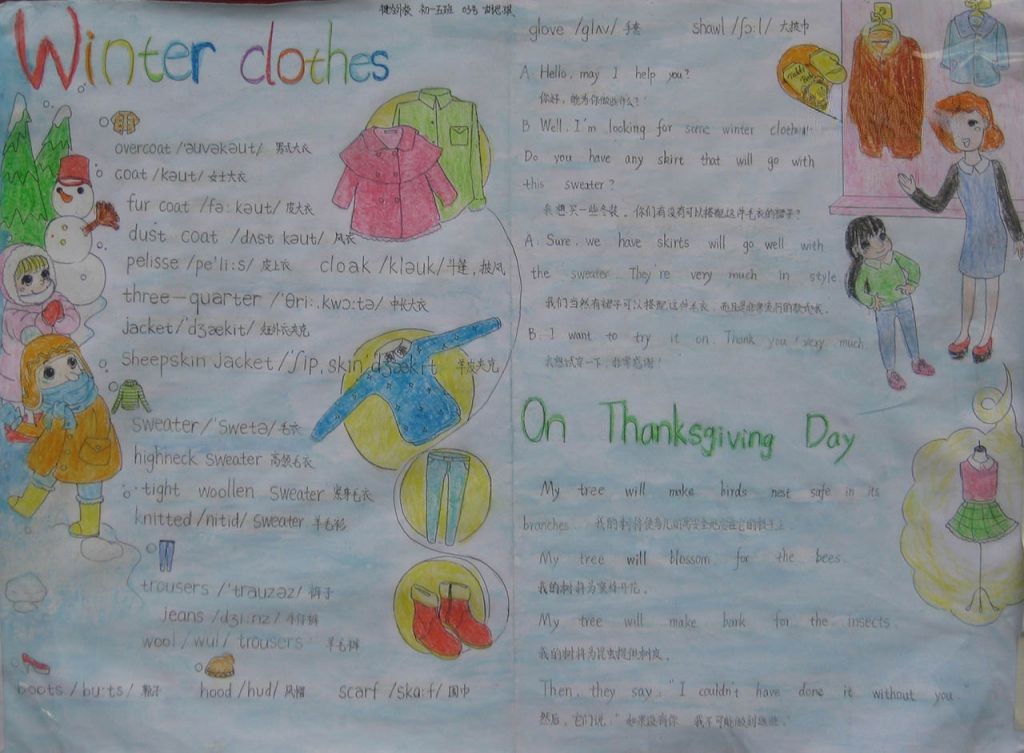 初一五班 03号
Winter clothes
overcoat /'əuvəkəut/ 男式大衣
coat /kəut/ 女士大衣
fur coat /fə: kəut/ 皮大衣
dust coat /dʌst kəut/ 风衣
pelisse /pe'li:s/ 皮上衣 cloak /kləuk/ 斗篷,披风
three-quarter /'θri:.kwɔ:tə/ 中长大衣
jacket /'dʒækit/ 短外衣夹克
sheepskin jacket /'ʃip,skin'dʒækit 羊皮夹克
sweater /'swetə/ 毛衣
highneck sweater 高领毛衣
tight woollen sweater 紧身毛衣
knitted /nitid/ sweater 羊毛衫
trousers /'trauzəz/ 裤子
jeans /dʒi:nz/ 牛仔裤
wool /wul/ trousers 羊毛裤
boots /bu:ts/ 靴子 hood /hud/ 风帽 scarf /ska:f/ 围巾
glove /glʌv/ 手套 shawl /ʃɔ:l/ 大披巾
A: Hello, may I help you?
你好,能为你做些什么?
B: Well, I'm looking for some winter clothes!
Do you have any skirt that will go with
this sweater?
我想买一些冬装。你们有没有可以搭配这件毛衣的裙子?
A: Sure, we have skirts will go well with
the sweater. They're very much in style
我们当然有裙子可以搭配这件毛衣,而且是非常流行的款式哦。
B: I want to try it on. Thank you very much
我想试穿一下,非常感谢!
On Thanksgiving Day
My tree will make birds nest safe in its
branches. 我的树将使鸟儿的窝安全地在它的枝子上
My tree will blossom for the bees.
我的树将为蜜蜂开花。
My tree will make bark for the insects.
我的树将为昆虫提供树皮。
Then, they say: "I couldn't have done it without you
然后,它们说:"如果没有你 我不可能做到这些。"